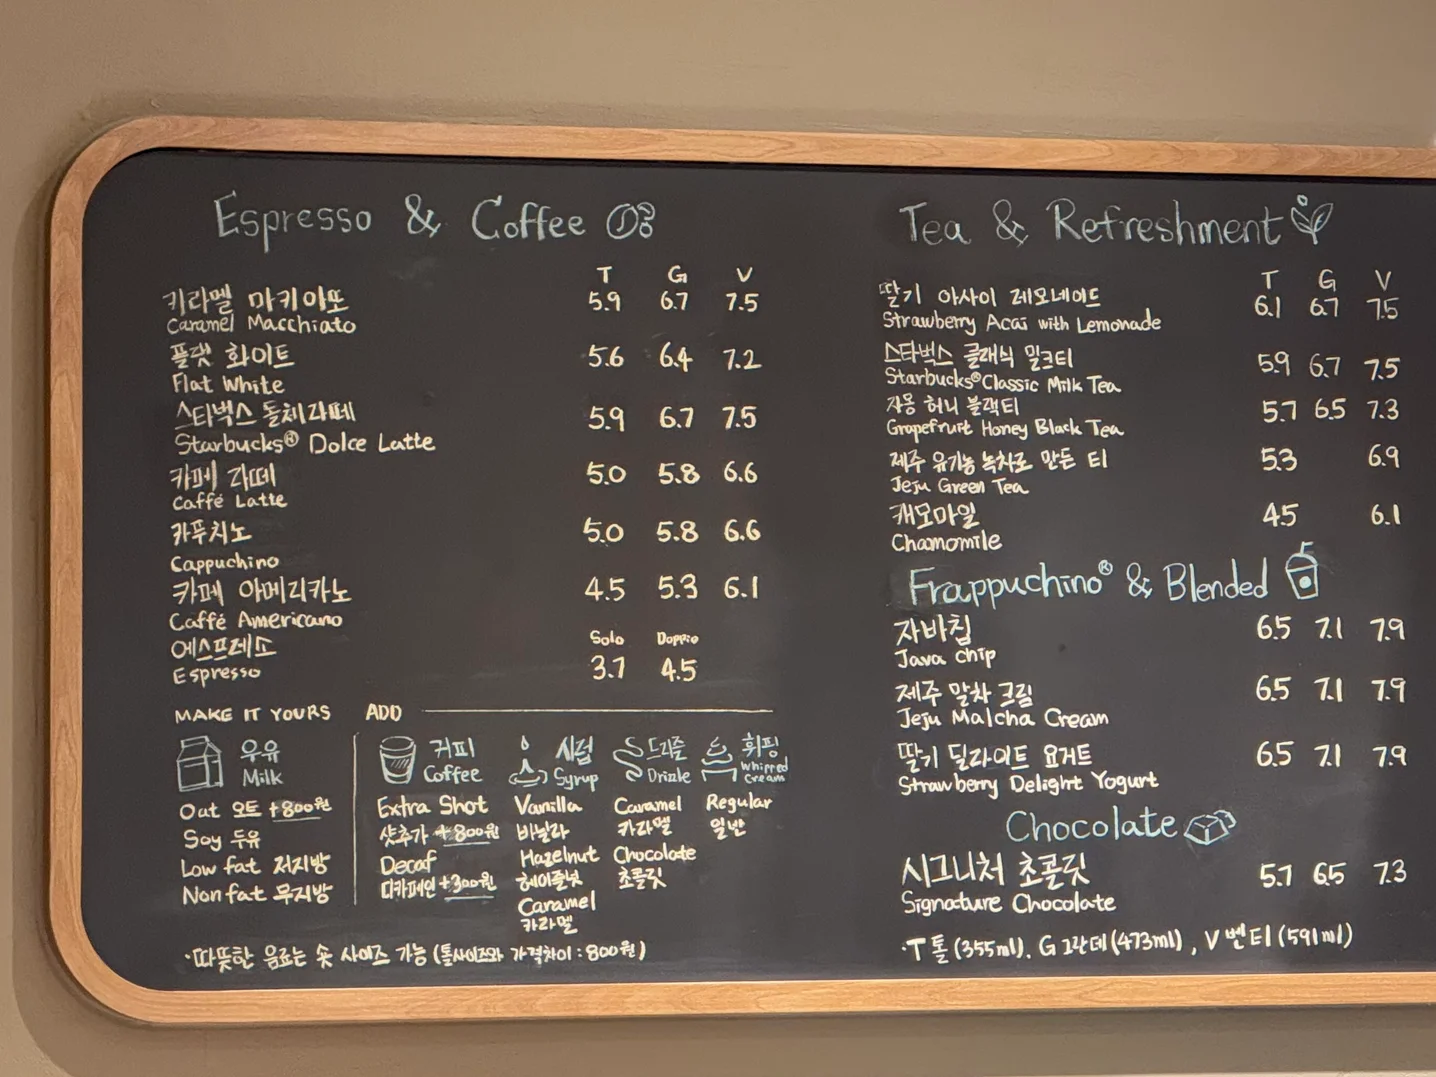 Espresso & Coffee
T G V
카라멜 마키아또 5.9 6.7 7.5
Caramel Macchiato
플랫 화이트 5.6 6.4 7.2
Flat White
스타벅스 돌체라떼 5.9 6.7 7.5
Starbucks® Dolce Latte
카페 라떼 5.0 5.8 6.6
Caffé Latte
카푸치노 5.0 5.8 6.6
Cappuchino
카페 아메리카노 4.5 5.3 6.1
Caffé Americano
에스프레소 Solo Doppio
Espresso 3.7 4.5
MAKE IT YOURS
우유
Milk
Oat 오트 +800원
Soy 두유
Low fat 저지방
Non fat 무지방
ADD
커피
Coffee
Extra Shot
샷추가 +800원
Decaf
디카페인 +300원
시럽
Syrup
Vanilla
바닐라
Hazelnut
헤이즐넛
Caramel
카라멜
드리즐
Drizzle
Caramel
카라멜
Chocolate
초콜릿
휘핑
Whipped
Cream
Regular
일반
·따뜻한 음료는 숏 사이즈 가능 (톨사이즈와 가격차이 : 800원)
Tea & Refreshment
T G V
딸기 아사이 레모네이드 6.1 6.7 7.5
Strawberry Acai with Lemonade
스타벅스 클래식 밀크티 5.9 6.7 7.5
Starbucks® Classic Milk Tea
자몽 허니 블랙티 5.7 6.5 7.3
Grapefruit Honey Black Tea
제주 유기농 녹차로 만든 티 5.3 6.9
Jeju Green Tea
캐모마일 4.5 6.1
Chamomile
Frappuchino® & Blended
자바칩 6.5 7.1 7.9
Java chip
제주 말차 크림 6.5 7.1 7.9
Jeju Malcha Cream
딸기 딜라이트 요거트 6.5 7.1 7.9
Strawberry Delight Yogurt
Chocolate
시그니처 초콜릿 5.7 6.5 7.3
Signature Chocolate
·T 톨 (355ml), G 그란데 (473ml), V 벤티 (591ml)